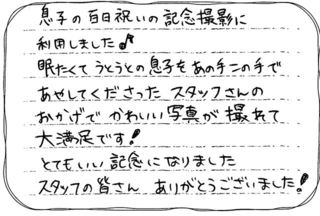 息子の百日祝いの記念撮影に
利用しました♪
眠たくてうとうとの息子をあの手この手で
あやしてくださった スタッフさんの
おかげで かわいい写真が 撮れて
大満足です!
とてもいい記念になりました
スタッフの皆さん ありがとうございました!